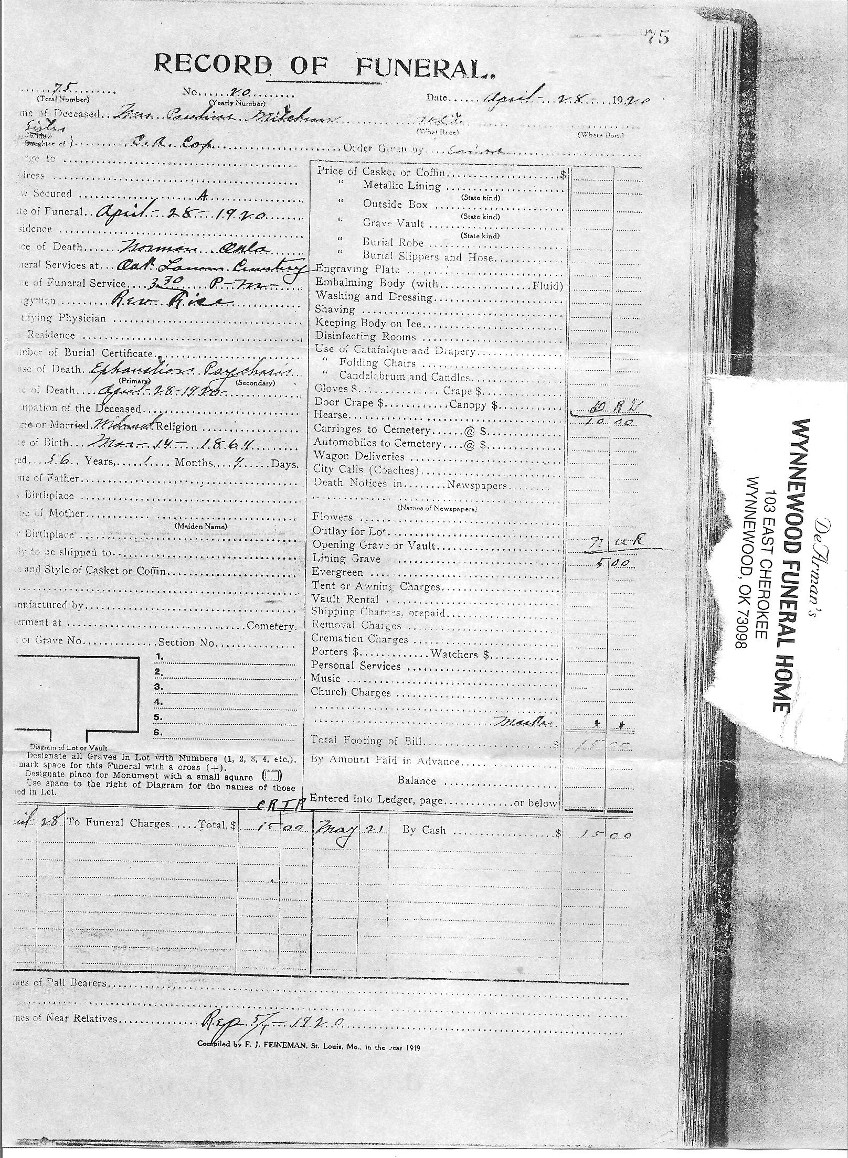 75
RECORD OF FUNERAL.
75 No. 20 Date April - 28 1920
(Total Number) (Yearly Number)
me of Deceased Mrs. Mitchum
(What Race) (Where Born)
Sister
Daughter of } C. R. Cop Order Given by
ge to
dress
w Secured A
te of Funeral April - 28 - 1920
sidence
ce of Death Norman Okla
neral Services at Oak Cemetery
e of Funeral Service 3 30 P - m -
gyman Rev Rice
tifying Physician
Residence
mber of Burial Certificate
se of Death Exhaustion Psychosis
(Primary) (Secondary)
e of Death April - 28 - 1920
upation of the Deceased
le or Married Widowed Religion
e of Birth Mar - 14 - 1864
ed 56 Years, 1 Months, Days.
me of Father
Birthplace
e of Mother
(Maiden Name)
Birthplace
y to be shipped to
and Style of Casket or Coffin
nufactured by
erment at Cemetery.
or Grave No. Section No.
1.
2.
3.
4.
5.
6.
Diagram of Lot or Vault
Designate all Graves in Lot with Numbers (1, 2, 3, 4, etc.),
mark space for this Funeral with a cross (+).
Designate place for Monument with a small square
Use space to the right of Diagram for the names of those
ed in Lot.
Price of Casket or Coffin $
" Metallic Lining
(State kind)
" Outside Box
(State kind)
" Grave Vault
(State kind)
" Burial Robe
" Burial Slippers and Hose
Engraving Plate
Embalming Body (with Fluid)
Washing and Dressing
Shaving
Keeping Body on Ice
Disinfecting Rooms
Use of Catafalque and Drapery
" Folding Chairs
" Candelabrum and Candles
Gloves $ Crape $
Door Crape $ Canopy $
Hearse 10 00
Carriages to Cemetery @ $
Automobiles to Cemetery @ $
Wagon Deliveries
City Calls (Coaches)
Death Notices in Newspapers
(Names of Newspapers)
Flowers
Outlay for Lot
Opening Grave or Vault
Lining Grave 5 00
Evergreen
Tent or Awning Charges
Vault Rental
Shipping Charges, prepaid
Removal Charges
Cremation Charges
Porters $ Watchers $
Personal Services
Music
Church Charges
Total Footing of Bill $ 15 00
By Amount Paid in Advance
Balance
Entered into Ledger, page or below
CRTR
il 28 To Funeral Charges Total, $ 15 00 May 21 By Cash $ 15 00
mes of Pall Bearers
mes of Near Relatives Rep 1920
Compiled by F. J. FEINEMAN, St. Louis, Mo., in the year 1919
DeArman's
WYNNEWOOD FUNERAL HOME
103 EAST CHEROKEE
WYNNEWOOD, OK 73098